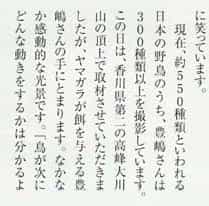 に笑っています。
現在、約５５０種類といわれる
日本の野鳥のうち、豊嶋さんは
３００種類以上を撮影しています。
この日は、香川県第二の高峰大川
山の頂上で取材させていただきま
したが、ヤマガラが餌を与える豊
嶋さんの手にとまります。なかな
か感動的な光景です。「鳥が次に
どんな動きをするかは分かるよ